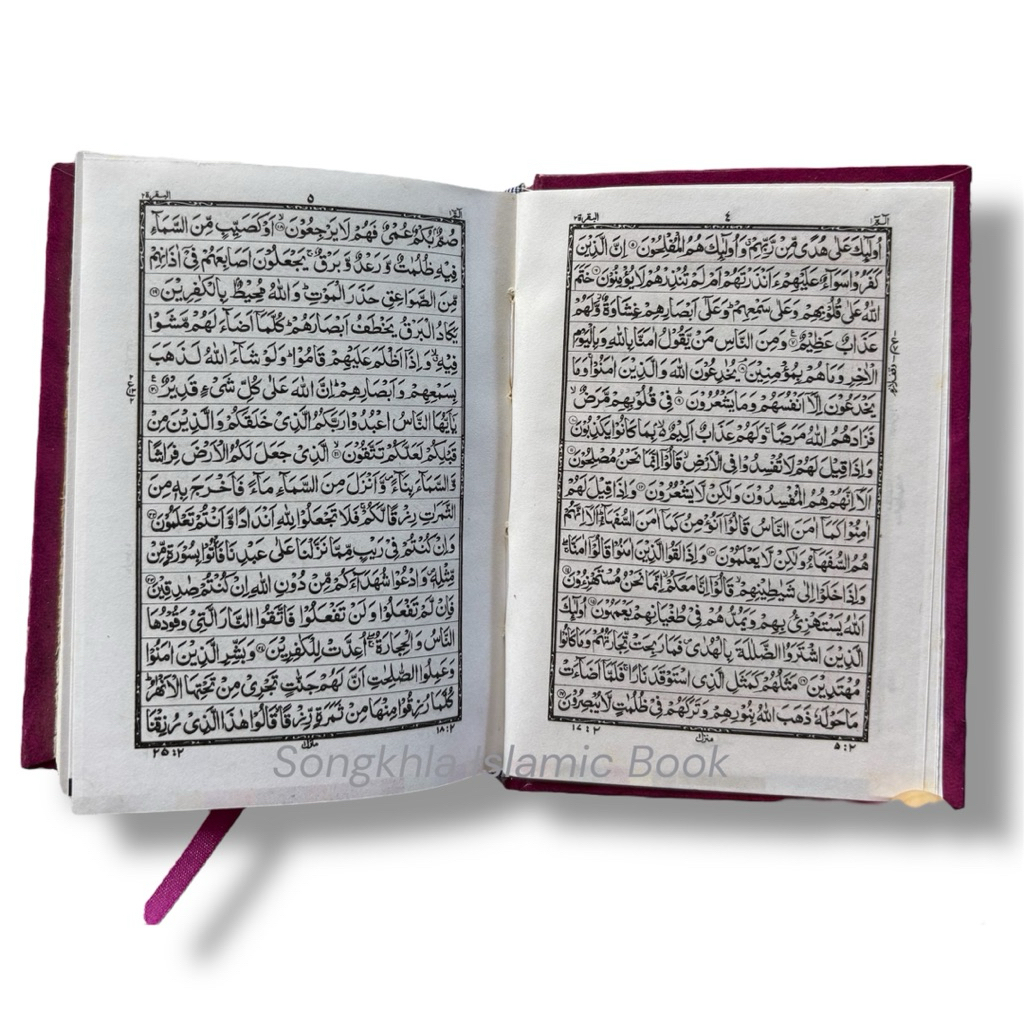 الٓمّٓ ١ ٤ البقرة ٢
اُولٰٓئِكَ عَلٰى هُدًى مِّنْ رَّبِّهِمْ وَاُولٰٓئِكَ هُمُ الْمُفْلِحُوْنَ ۵ اِنَّ الَّذِيْنَ
كَفَرُوْا سَوَآءٌ عَلَيْهِمْ ءَاَنْذَرْتَهُمْ اَمْ لَمْ تُنْذِرْهُمْ لَا يُؤْمِنُوْنَ ۶ خَتَمَ
اللّٰهُ عَلٰى قُلُوْبِهِمْ وَعَلٰى سَمْعِهِمْ وَعَلٰٓى اَبْصَارِهِمْ غِشَاوَةٌ وَّلَهُمْ
عَذَابٌ عَظِيْمٌ ۷ وَمِنَ النَّاسِ مَنْ يَّقُوْلُ اٰمَنَّا بِاللّٰهِ وَبِالْيَوْمِ
الْاٰخِرِ وَمَا هُمْ بِمُؤْمِنِيْنَ ۸ يُخٰدِعُوْنَ اللّٰهَ وَالَّذِيْنَ اٰمَنُوْا وَمَا
يَخْدَعُوْنَ اِلَّآ اَنْفُسَهُمْ وَمَا يَشْعُرُوْنَ ۹ فِيْ قُلُوْبِهِمْ مَّرَضٌ
فَزَادَهُمُ اللّٰهُ مَرَضًا وَلَهُمْ عَذَابٌ اَلِيْمٌ بِمَا كَانُوْا يَكْذِبُوْنَ ۱۰
وَاِذَا قِيْلَ لَهُمْ لَا تُفْسِدُوْا فِي الْاَرْضِ قَالُوْٓا اِنَّمَا نَحْنُ مُصْلِحُوْنَ ۱۱
اَلَآ اِنَّهُمْ هُمُ الْمُفْسِدُوْنَ وَلٰكِنْ لَّا يَشْعُرُوْنَ ۱۲ وَاِذَا قِيْلَ لَهُمْ
اٰمِنُوْا كَمَآ اٰمَنَ النَّاسُ قَالُوْٓا اَنُؤْمِنُ كَمَآ اٰمَنَ السُّفَهَآءُ اَلَآ اِنَّهُمْ
هُمُ السُّفَهَآءُ وَلٰكِنْ لَّا يَعْلَمُوْنَ ۱۳ وَاِذَا لَقُوا الَّذِيْنَ اٰمَنُوْا قَالُوْٓا اٰمَنَّا
وَاِذَا خَلَوْا اِلٰى شَيٰطِيْنِهِمْ قَالُوْٓا اِنَّا مَعَكُمْ اِنَّمَا نَحْنُ مُسْتَهْزِءُوْنَ ۱۴
اَللّٰهُ يَسْتَهْزِئُ بِهِمْ وَيَمُدُّهُمْ فِيْ طُغْيَانِهِمْ يَعْمَهُوْنَ ۱۵ اُولٰٓئِكَ
الَّذِيْنَ اشْتَرَوُا الضَّلٰلَةَ بِالْهُدٰى فَمَا رَبِحَتْ تِّجَارَتُهُمْ وَمَا كَانُوْا
مُهْتَدِيْنَ ۱۶ مَثَلُهُمْ كَمَثَلِ الَّذِي اسْتَوْقَدَ نَارًا فَلَمَّآ اَضَآءَتْ
مَا حَوْلَهٗ ذَهَبَ اللّٰهُ بِنُوْرِهِمْ وَتَرَكَهُمْ فِيْ ظُلُمٰتٍ لَّا يُبْصِرُوْنَ ۱۷
٥:٢ منزل ١٧:٢
الٓمّٓ ١ ٥ البقرة ٢
صُمٌّۢ بُكْمٌ عُمْيٌ فَهُمْ لَا يَرْجِعُوْنَ ۱۸ اَوْ كَصَيِّبٍ مِّنَ السَّمَآءِ
فِيْهِ ظُلُمٰتٌ وَّرَعْدٌ وَّبَرْقٌ يَجْعَلُوْنَ اَصَابِعَهُمْ فِيْٓ اٰذَانِهِمْ
مِّنَ الصَّوَاعِقِ حَذَرَ الْمَوْتِ وَاللّٰهُ مُحِيْطٌۢ بِالْكٰفِرِيْنَ ۱۹
يَكَادُ الْبَرْقُ يَخْطَفُ اَبْصَارَهُمْ كُلَّمَآ اَضَآءَ لَهُمْ مَّشَوْا
فِيْهِ وَاِذَآ اَظْلَمَ عَلَيْهِمْ قَامُوْا وَلَوْ شَآءَ اللّٰهُ لَذَهَبَ
بِسَمْعِهِمْ وَاَبْصَارِهِمْ اِنَّ اللّٰهَ عَلٰى كُلِّ شَيْءٍ قَدِيْرٌ ۲۰
يٰٓاَيُّهَا النَّاسُ اعْبُدُوْا رَبَّكُمُ الَّذِيْ خَلَقَكُمْ وَالَّذِيْنَ مِنْ
قَبْلِكُمْ لَعَلَّكُمْ تَتَّقُوْنَ ۲۱ الَّذِيْ جَعَلَ لَكُمُ الْاَرْضَ فِرَاشًا
وَّالسَّمَآءَ بِنَآءً وَّاَنْزَلَ مِنَ السَّمَآءِ مَآءً فَاَخْرَجَ بِهٖ مِنَ
الثَّمَرٰتِ رِزْقًا لَّكُمْ فَلَا تَجْعَلُوْا لِلّٰهِ اَنْدَادًا وَّاَنْتُمْ تَعْلَمُوْنَ ۲۲
وَاِنْ كُنْتُمْ فِيْ رَيْبٍ مِّمَّا نَزَّلْنَا عَلٰى عَبْدِنَا فَأْتُوْا بِسُوْرَةٍ مِّنْ
مِّثْلِهٖ وَادْعُوْا شُهَدَآءَكُمْ مِّنْ دُوْنِ اللّٰهِ اِنْ كُنْتُمْ صٰدِقِيْنَ ۲۳
فَاِنْ لَّمْ تَفْعَلُوْا وَلَنْ تَفْعَلُوْا فَاتَّقُوا النَّارَ الَّتِيْ وَقُوْدُهَا
النَّاسُ وَالْحِجَارَةُ اُعِدَّتْ لِلْكٰفِرِيْنَ ۲۴ وَبَشِّرِ الَّذِيْنَ اٰمَنُوْا
وَعَمِلُوا الصّٰلِحٰتِ اَنَّ لَهُمْ جَنّٰتٍ تَجْرِيْ مِنْ تَحْتِهَا الْاَنْهٰرُ
كُلَّمَا رُزِقُوْا مِنْهَا مِنْ ثَمَرَةٍ رِّزْقًا قَالُوْا هٰذَا الَّذِيْ رُزِقْنَا
١٨:٢ منزل ٢٥:٢
Songkhla Islamic Book